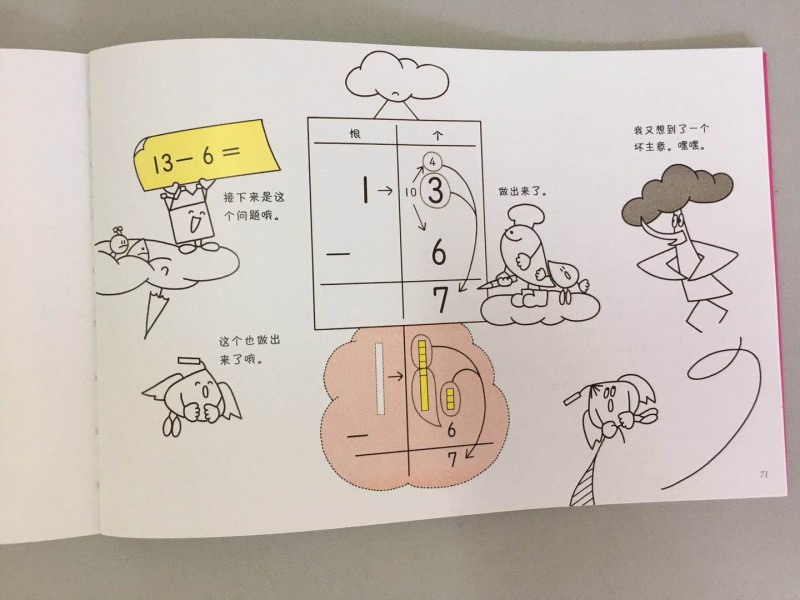 13－6＝
接下来是这
个问题哦。
根 个
4
1 → 10 3
－ 6
7
做出来了。
我又想到了一个
坏主意。嘿嘿。
这个也做出
来了哦。
→
－ 6
7
71